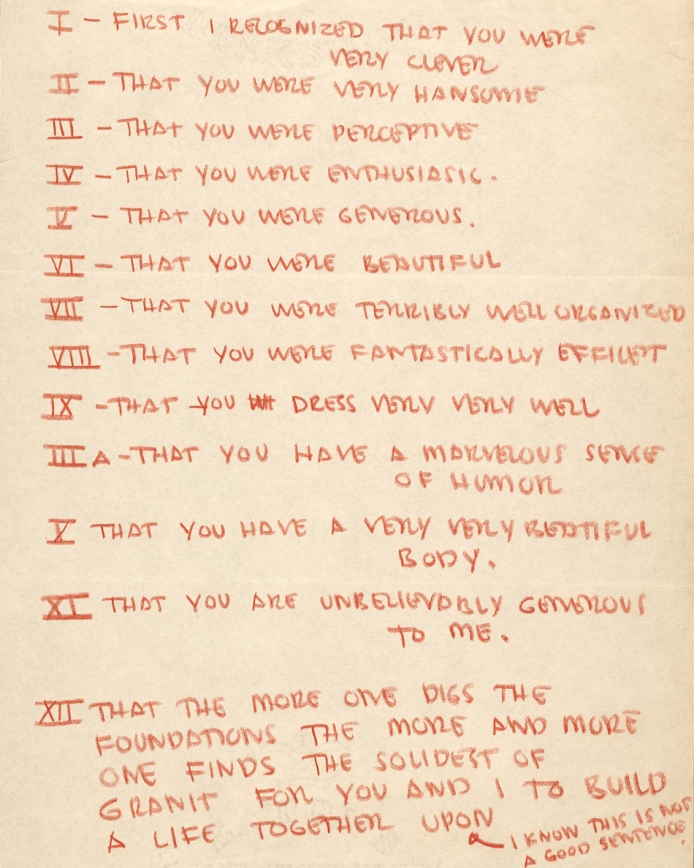 I – FIRST I RECOGNIZED THAT YOU WERE
VERY CLEVER
II – THAT YOU WERE VERY HANSOME
III – THAT YOU WERE PERCEPTIVE
IV – THAT YOU WERE ENTHUSIASIC.
V – THAT YOU WERE GENEROUS.
VI – THAT YOU WERE BEAUTIFUL
VII – THAT YOU WERE TERRIBLY WELL ORGANIZED
VIII – THAT YOU WERE FANTASTICALLY EFFICIET
IX – THAT YOU DRESS VERY VERY WELL
III A – THAT YOU HAVE A MARVELOUS SENCE
OF HUMOR
X THAT YOU HAVE A VERY VERY BEATIFUL
BODY.
XI THAT YOU ARE UNBELIEVABLY GENEROUS
TO ME.
XII THAT THE MORE ONE DIGS THE
FOUNDATIONS THE MORE AND MORE
ONE FINDS THE SOLIDEST OF
GRANIT FOR YOU AND I TO BUILD
A LIFE TOGETHER UPON
I KNOW THIS IS NOT
A GOOD SENTENCE.